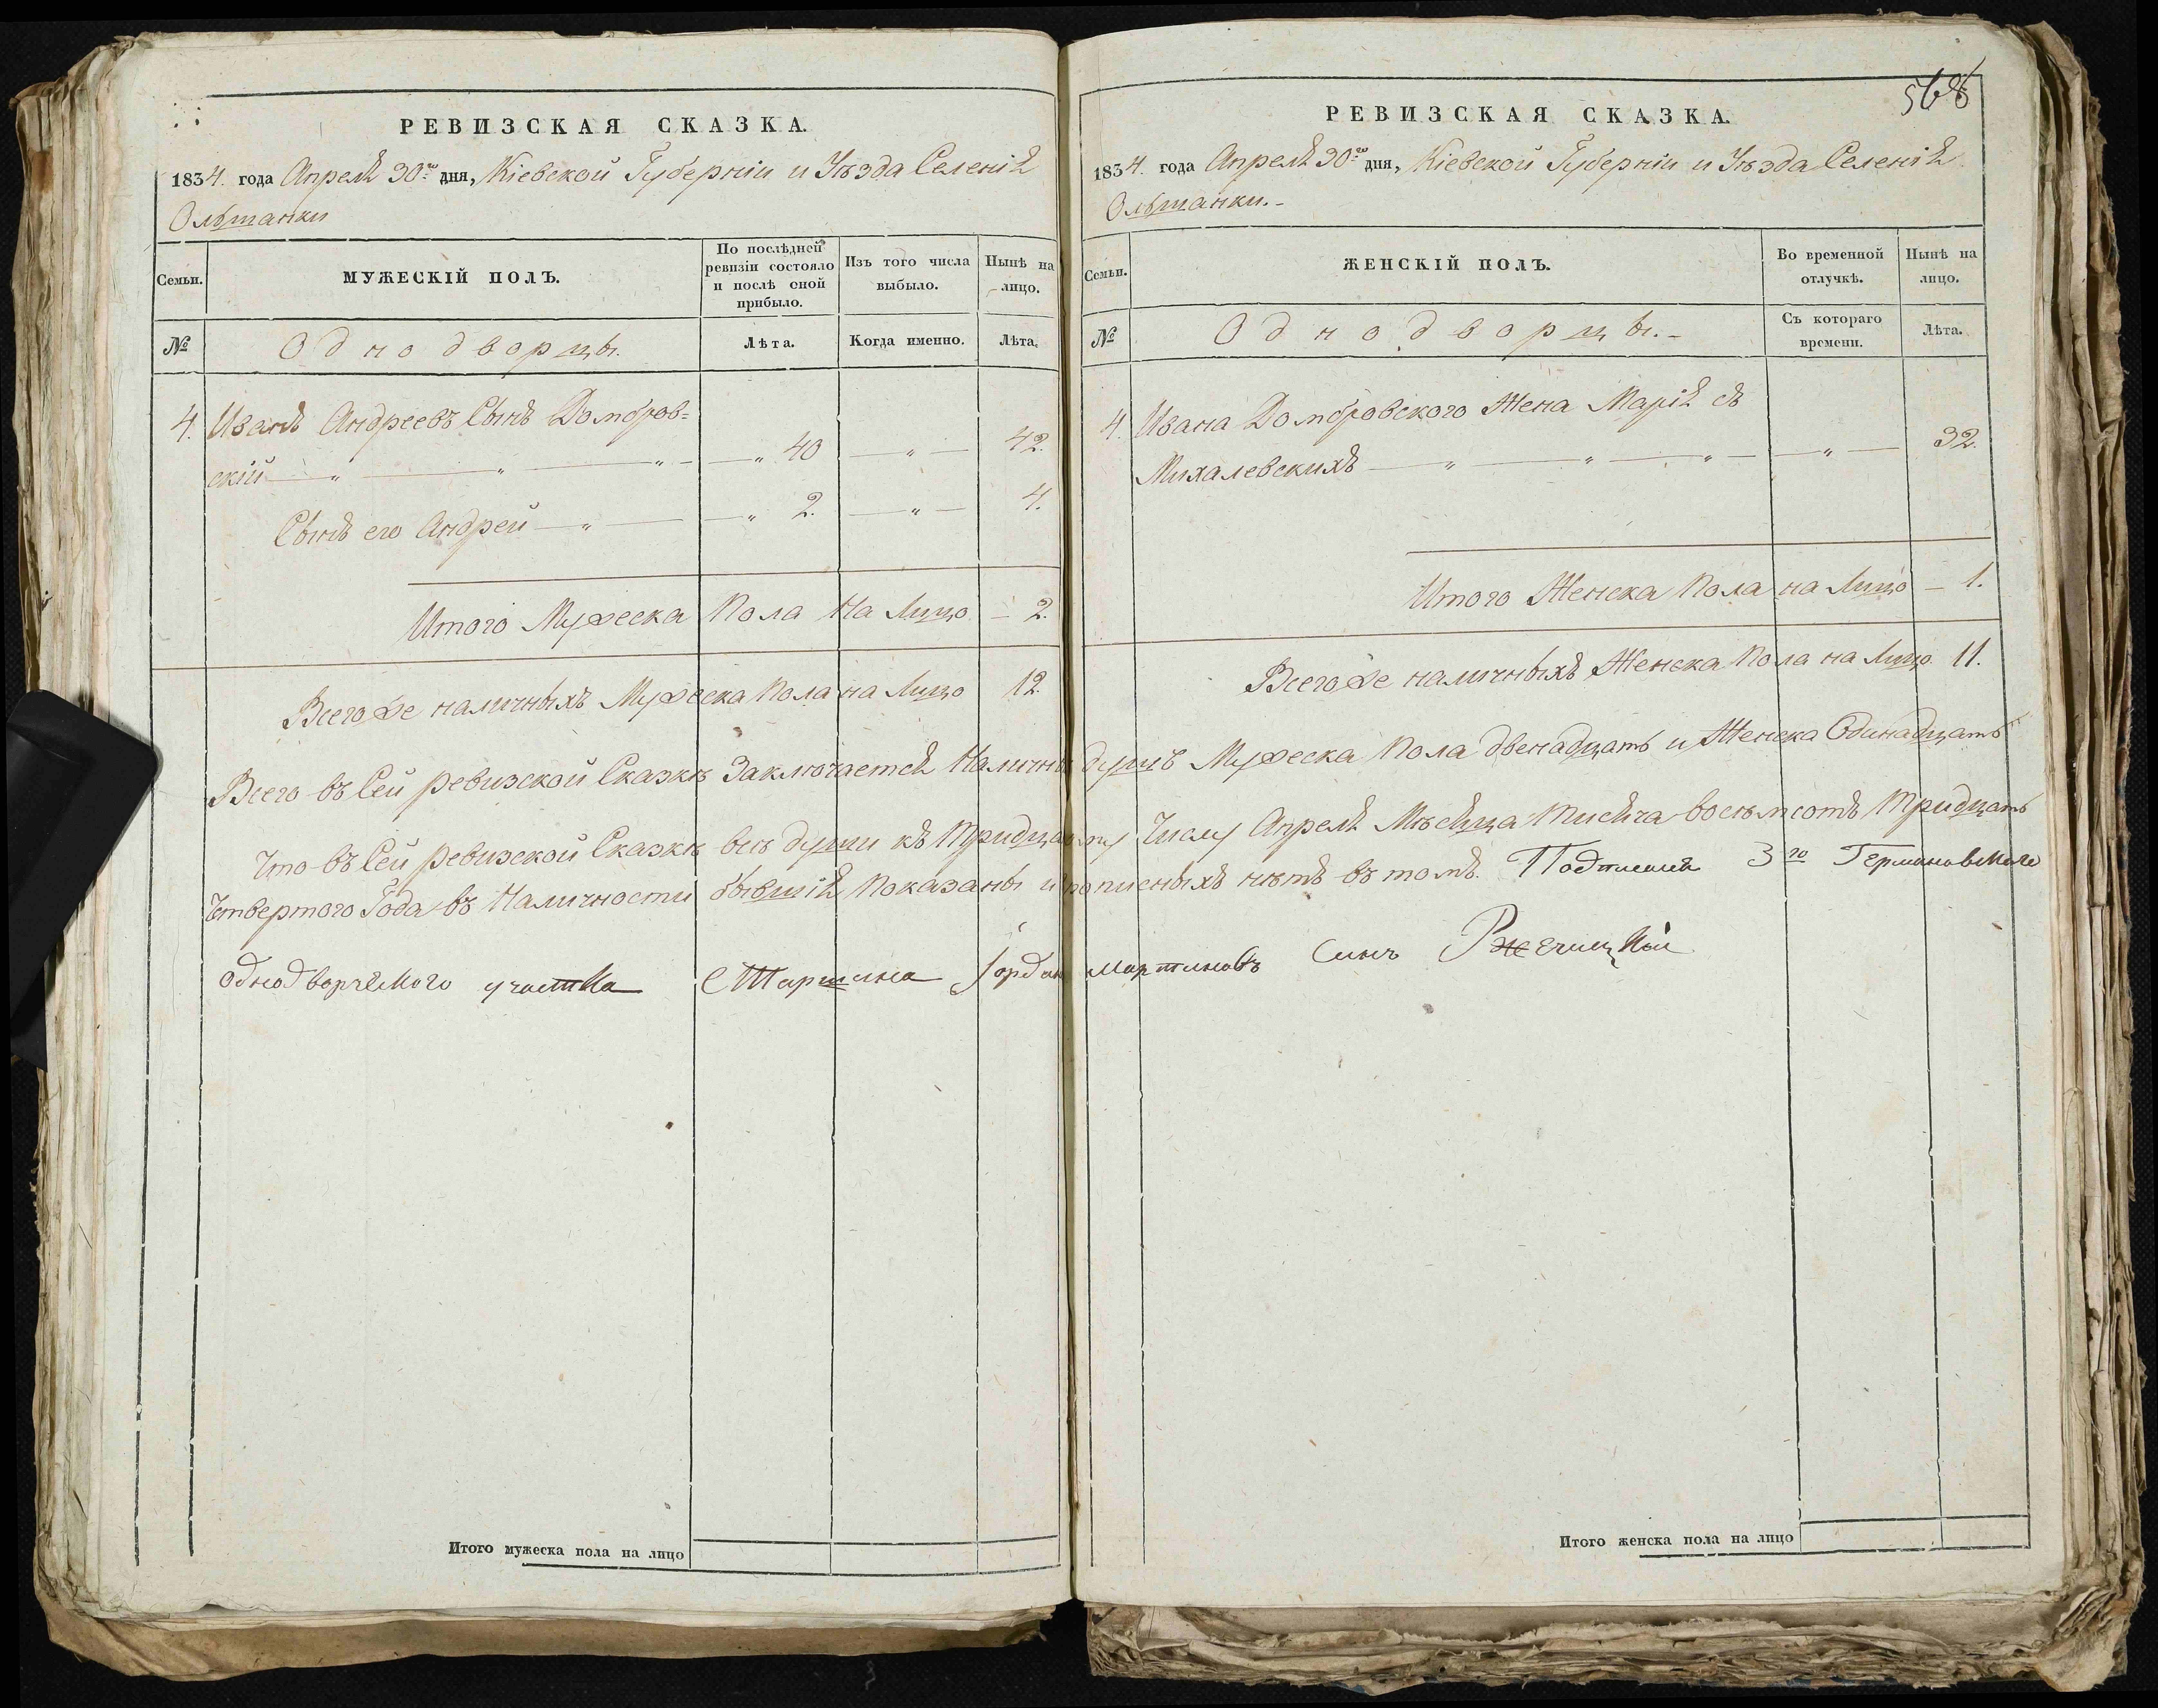 РЕВИЗСКАЯ СКАЗКА.
1834. года Апреля 30го дня, Кіевской Губерніи и Уѣзда Селенія
Ольшанки
Семьи.
МУЖЕСКІЙ ПОЛЪ.
По послѣдней ревизіи состояло и послѣ оной прибыло.
Изъ того числа выбыло.
Нынѣ на лицо.
№
Однодворцы.
Лѣта.
Когда именно.
Лѣта.
4. Иванъ Андреевъ Сынъ Домбров=
скій — „ — „ — „ — — „ 40 — „ — 42.
Сынъ его Андрей — „ — — „ 2. — „ — 4.
Итого Мужеска Пола На Лицо — 2.
Всего же наличныхъ Мужеска Пола на Лицо 12.
568
РЕВИЗСКАЯ СКАЗКА.
1834. года Апреля 30го дня, Кіевской Губерніи и Уѣзда Селенія
Ольшанки.-
Семьи.
ЖЕНСКІЙ ПОЛЪ.
Во временной отлучкѣ.
Нынѣ на лицо.
№
Однодворцы.-
Съ котораго времени.
Лѣта.
4. Ивана Домбровского Жена Марія съ
Михалевскихъ — „ — „ — „ — — „ — 32.
Итого Женска Пола на Лицо — 1.
Всего же наличныхъ Женска Пола на Лицо 11.
Всего въ Сей ревизской Сказкѣ Заключается Наличныхъ душъ Мужеска Пола двенадцать и Женска Одинадцать
Что въ Сей ревизской Сказкѣ всѣ души къ Тридцатому Числу Апреля Мѣсяца Тисяча восемсотъ Тридцать
Четвертого Года въ Наличности бывшія Показаны и прописныхъ нѣтъ въ томъ. Подписался 3го Германовского
однодворческого участка Старшина Іордан Мартиновъ Синъ Ржечицкий
Итого мужеска пола на лицо
Итого женска пола на лицо